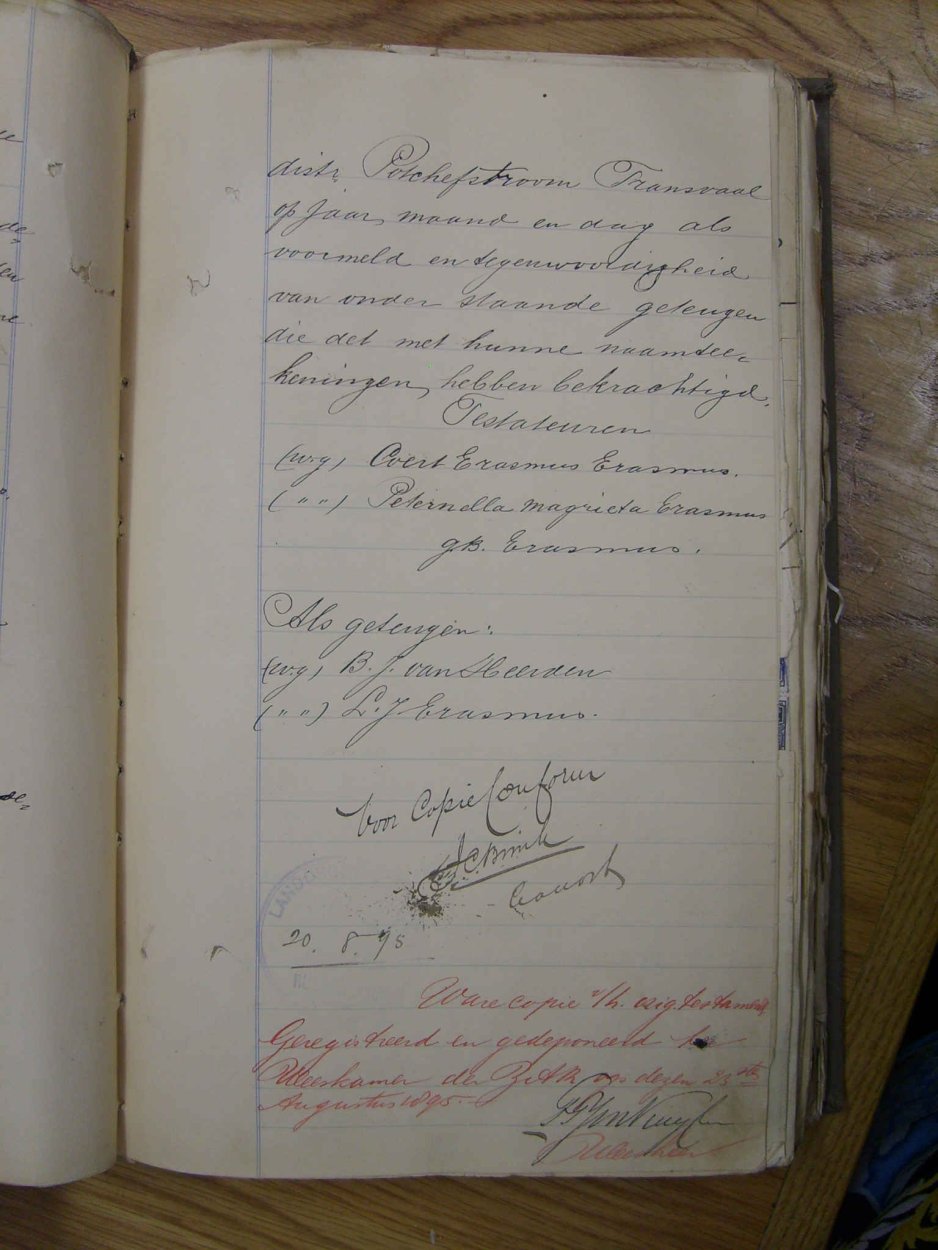 distr. Potchefstroom Transvaal
op Jaar, maand en dag als
voormeld en tegenwoordigheid
van onder staande geteugen
die det met hunne naamtee=
keningen, hebben bekrachtigd.
Testateuren
(w.g) Coert Erasmus Erasmus.
( " " ) Peternella Magrieta Erasmus
g.B. Erasmus.
Als geteugen:
(w.g) B. J. van Heerden
( " " ) L. J Erasmus.
Voor Copie Conform
J. C. Brink
LANDDROS
20. 8. 95
Ware copie v/h. orig. testament
Geregistreerd en gedeponeerd ter
Weeskamer der Z A R op dezen 23ste
Augustus 1895.
Weesheer